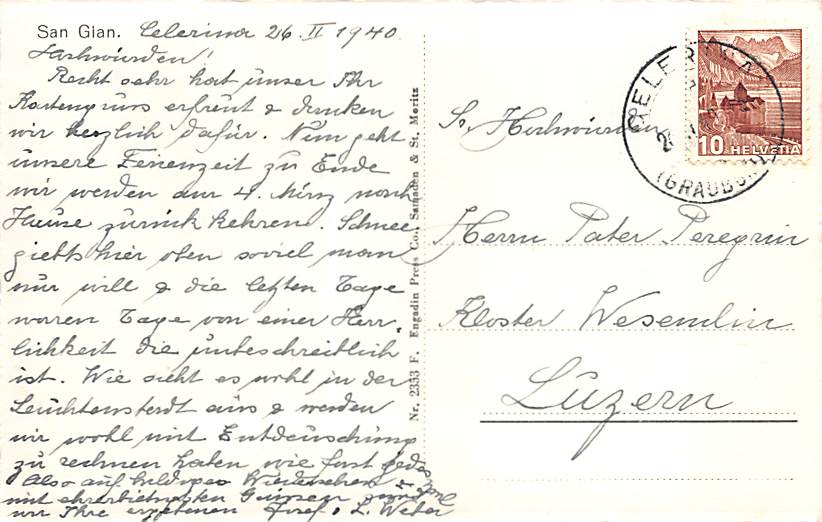 San Gian. Celerina 26 II 1940.
Hochwürden!
Recht sehr hat unser Ihr
Kartengruss erfreut & danken
wir herzlich dafür. Nun geht
unsere Ferienzeit zu Ende
wir werden am 4. März nach
Hause zurück kehren. Schnee
giebts hier oben soviel man
nur will & die letzten Tage
waren Tage von einer Herr-
lichkeit die unbeschreiblich
ist. Wie sieht es wohl in der
Leuchtenstadt aus & werden
wir wohl mit Entdeuschung
zu rechnen haben wie fast jedes
Also auf baldiges Wiedersehen &
mit ehrerbietigsten Grüssen
wir Ihre ergebenen Josef. L. Weber
Nr. 2353 F. Engadin Press Co., Samaden & St. Moritz
Sr. Hochwürden
Herrn Pater Peregrin
Kloster Wesemlin
Luzern
CELERINA
(GRAUBÜND
10 HELVETIA